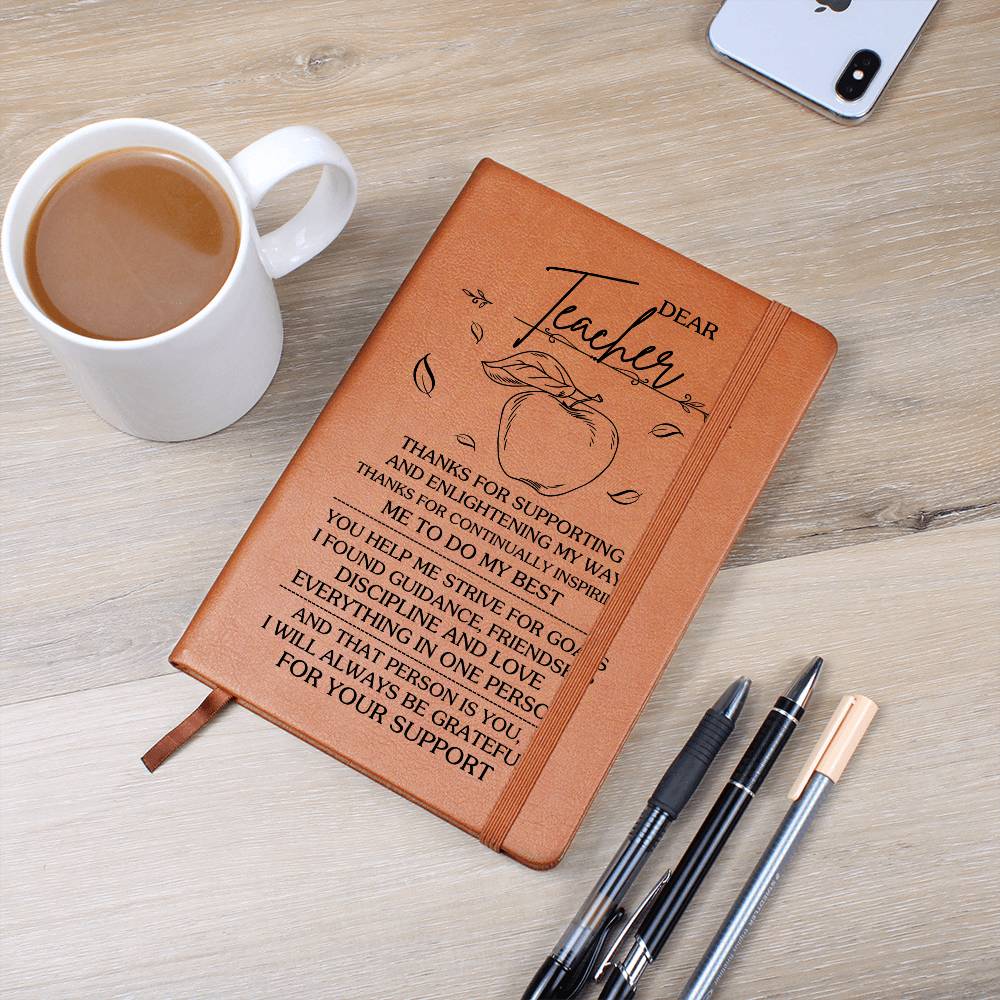 DEAR
Teacher
THANKS FOR SUPPORTING
AND ENLIGHTENING MY WAY
THANKS FOR CONTINUALLY INSPIRI
ME TO DO MY BEST
YOU HELP ME STRIVE FOR GOALS
I FOUND GUIDANCE, FRIENDSHIPS
DISCIPLINE AND LOVE
EVERYTHING IN ONE PERSO
AND THAT PERSON IS YOU,
I WILL ALWAYS BE GRATEFU
FOR YOUR SUPPORT